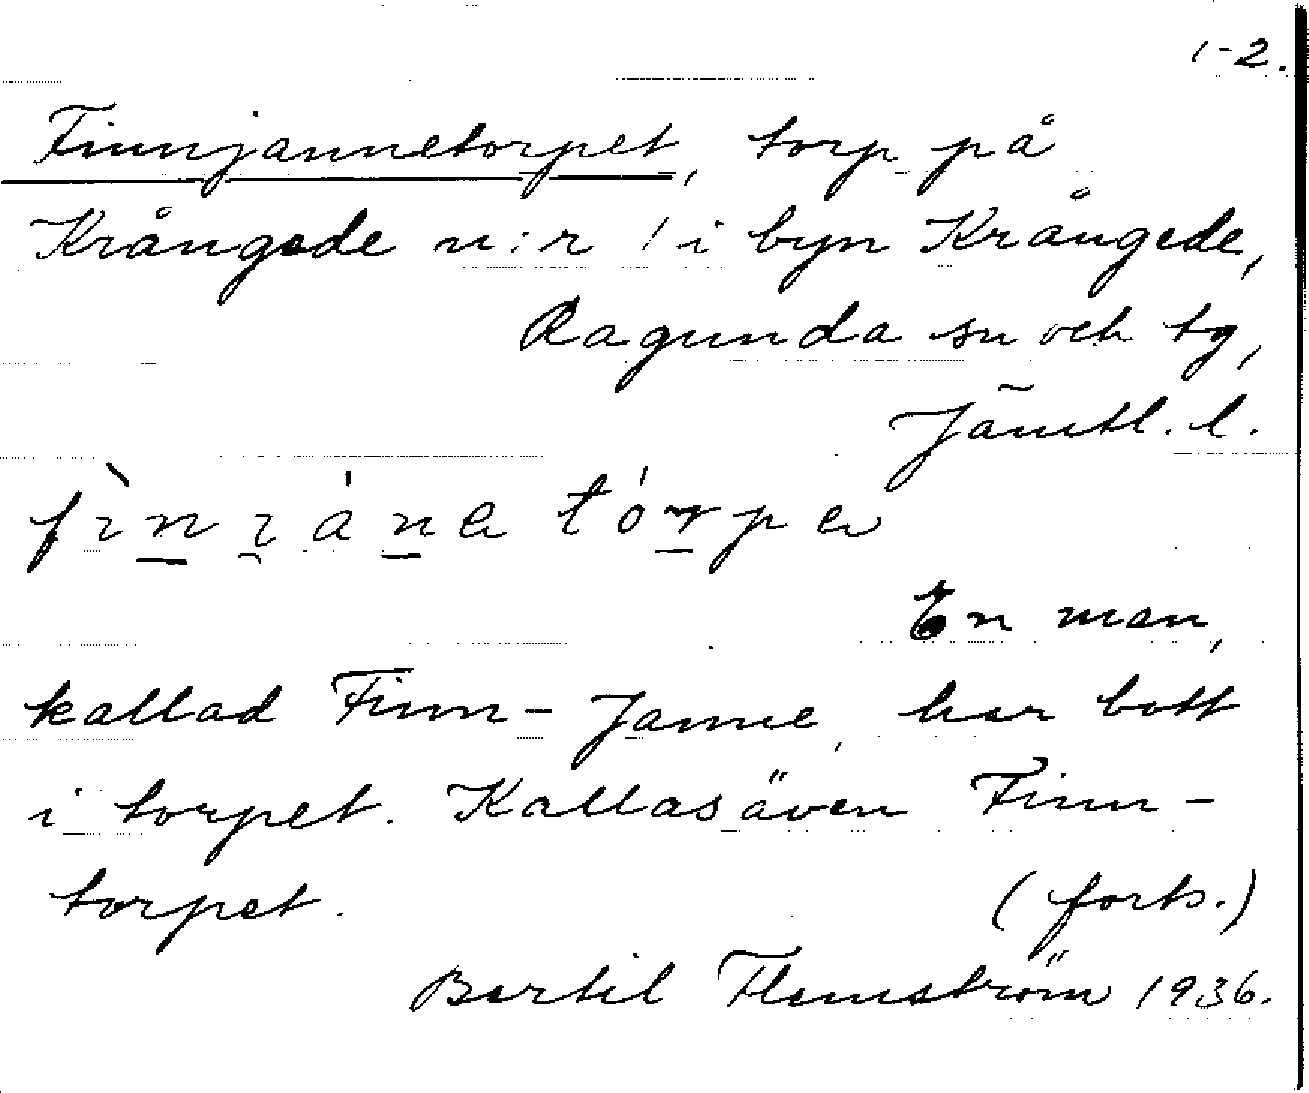 1-2.
Finnjannetorpet, torp på
Krångede n:r 1 i byn Krångede,
Ragunda sn och tg,
Jämtl. l.
fìnɪ̯ána tórpa
En man,
kallad Finn-Janne, har bott
i torpet. Kallas även Finn-
torpet. (forts.)
Bertil Flemström 1936.